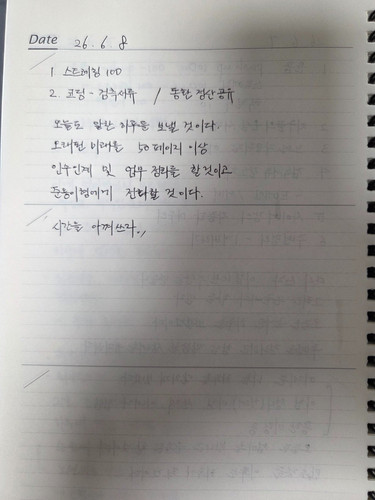 Date 26. 6. 8
1. 스트레칭 100
2. 코딩 - 검측서류 / 통환 정산 공유
오늘도 알찬 하루를 보낼 것이다.
미래를 50페이지 이상
인수인계 및 업무 정리를 할 것이고
형에게 전달할 것이다.
시간을 아껴쓰라.,